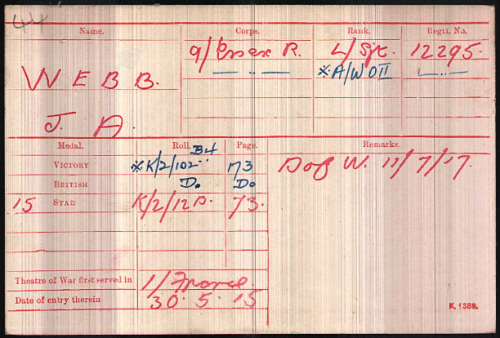 44
Name. Corps. Rank. Regtl. No.
9/Essex R. L/Sjt. 12295.
WEBB. — " — *A/WOII — " —
J. A.
Medal. Roll. Page. Remarks.
VICTORY *K/2/102 B4 173 D of W. 11/7/17.
BRITISH Do Do
15 STAR K/2/12B. 73.
Theatre of War first served in 1/France
Date of entry therein 30.5.15
K. 1380.